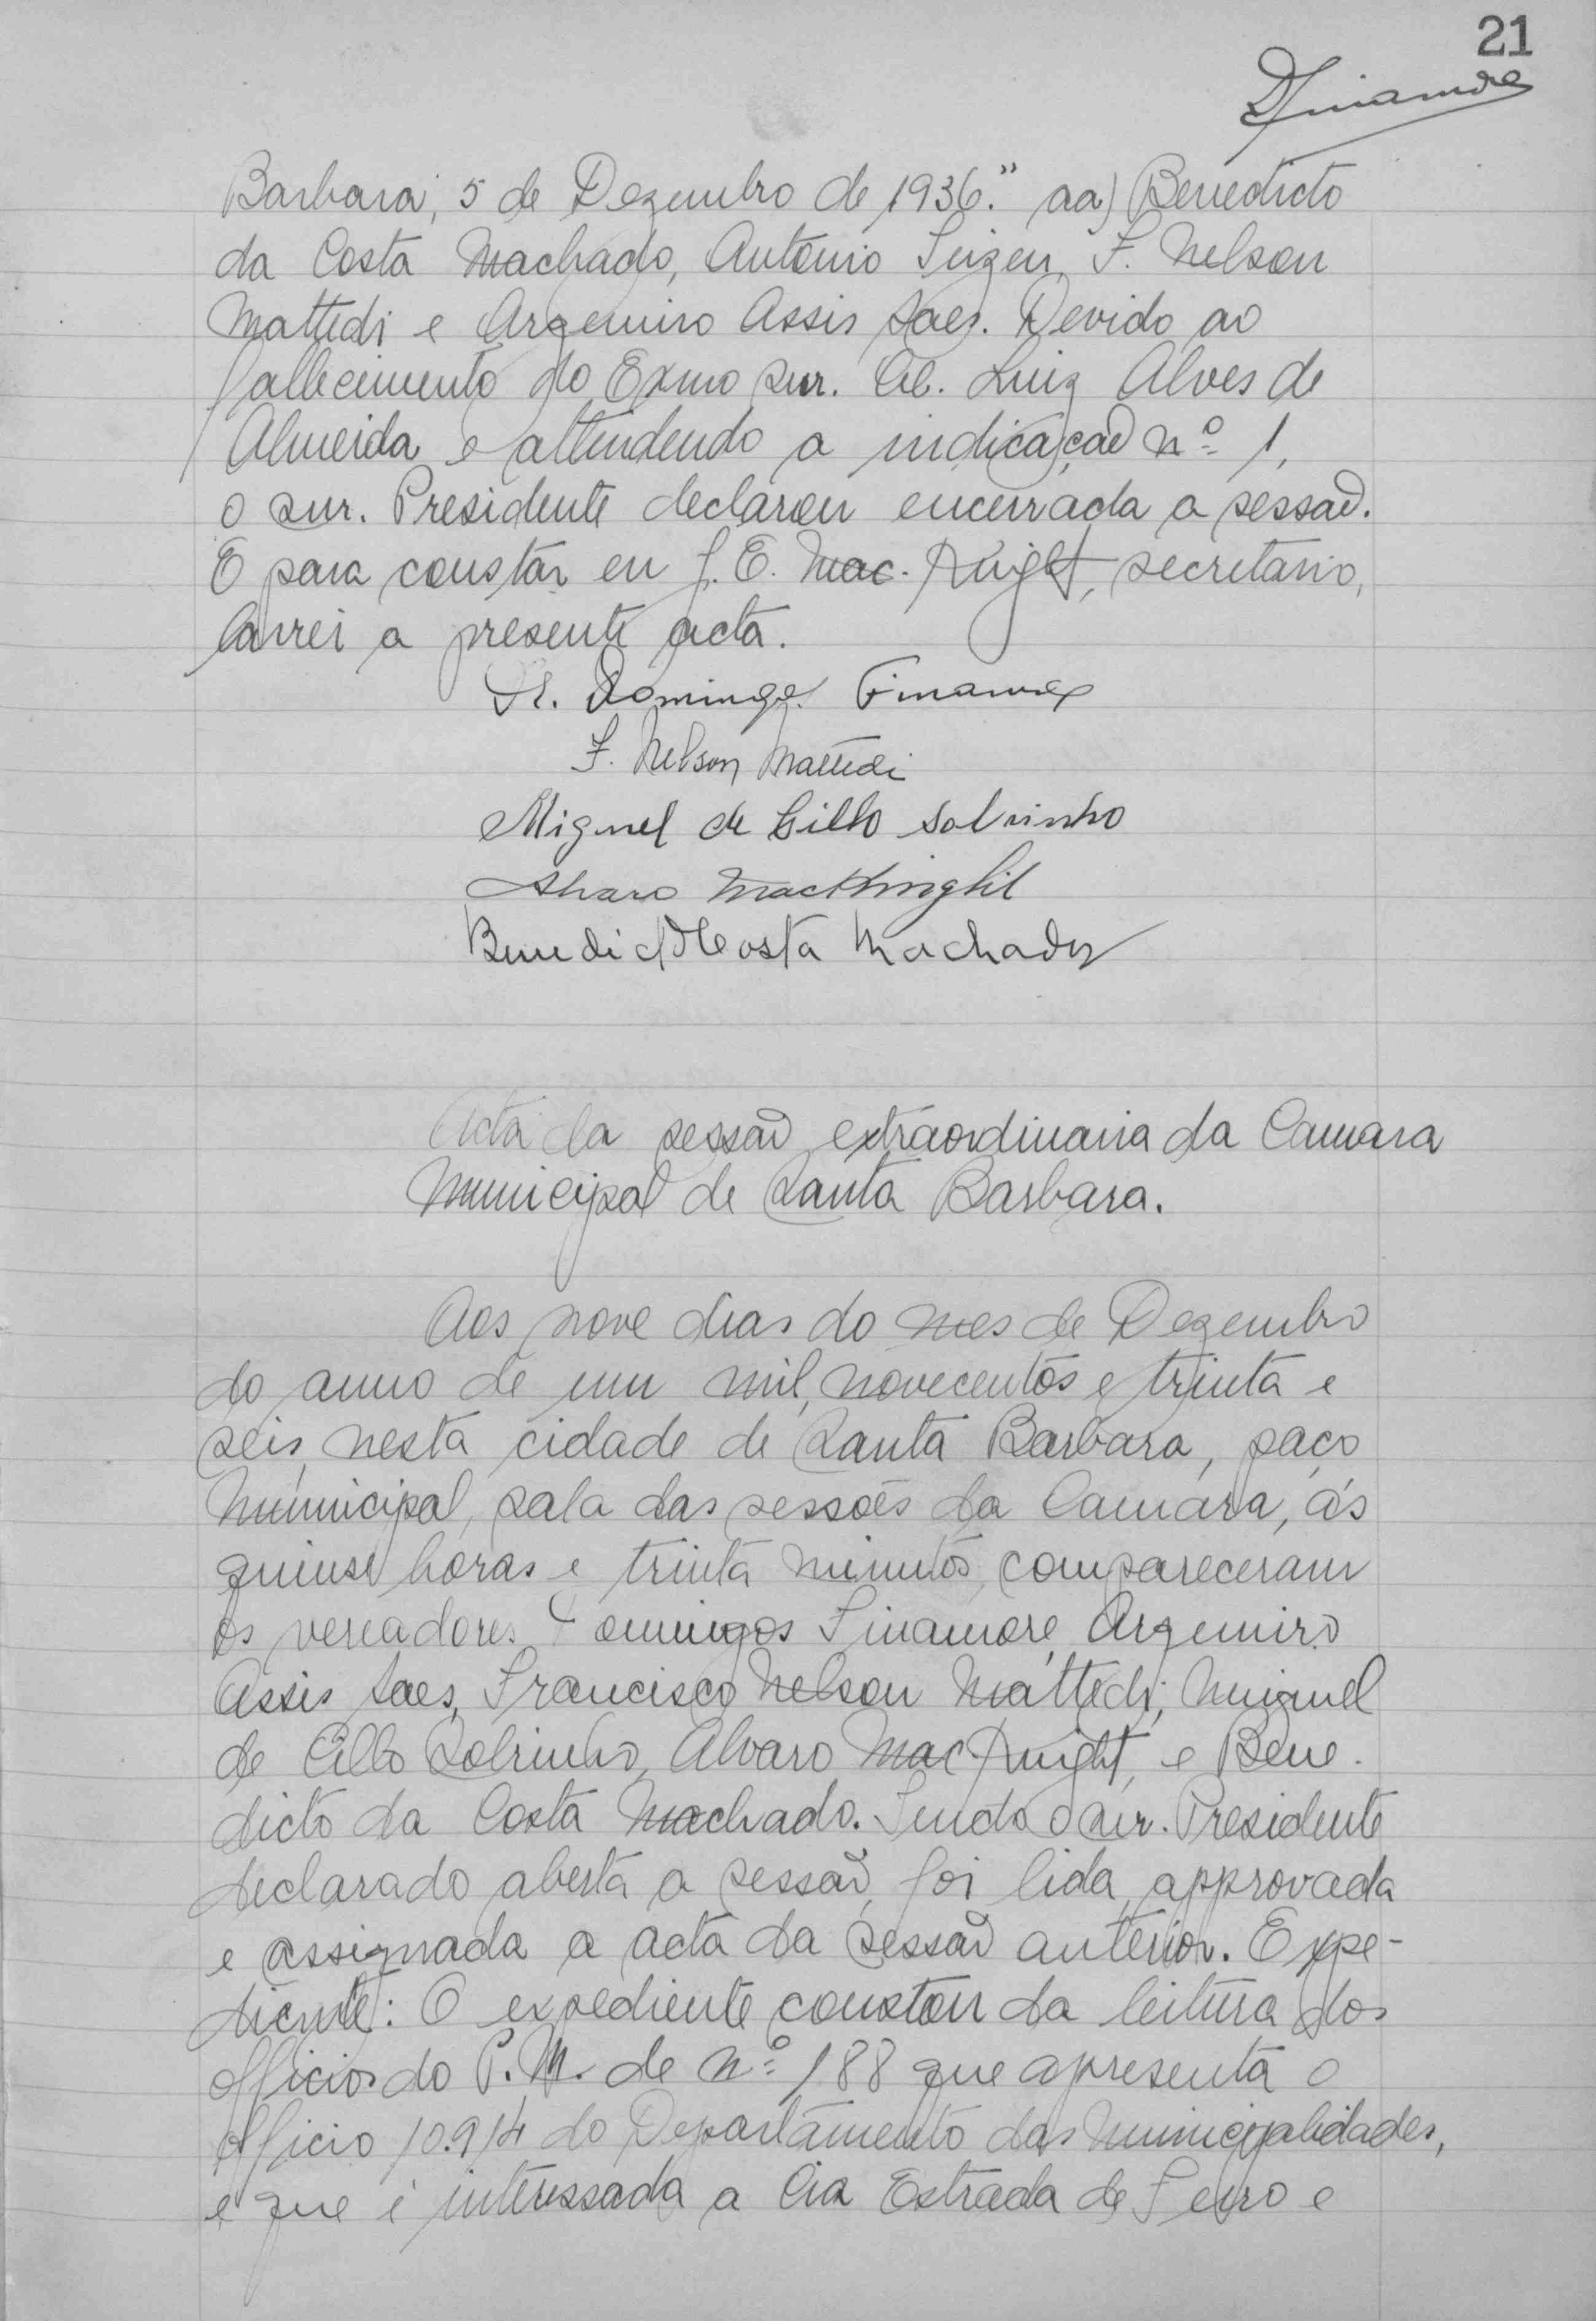 21
DFinamore
Barbara, 5 de Dezembro de 1936." aa) Benedicto
da Costa Machado, Antonio F. Nelson
Mattedi e Argemiro Assis Saes. Devido ao
fallecimento do Exmo snr. Luiz Alves de
Almeida e attendendo a indicação nº 1,
o snr. Presidente declarou encerrada a sessão.
E para constar eu J. E. Mac-Knight, secretario,
lavrei a presente acta.
Dr. Domingos Finamore
F. Nelson Mattedi
Miguel de Cillo Sobrinho
Alvaro MacKnight
Benedicto Costa Machado
Acta da sessão extraordinaria da Camara
Municipal de Santa Barbara.
Aos nove dias do mes de Dezembro
do anno de um mil, novecentos e trinta e
seis, nesta cidade de Santa Barbara, paço
Municipal, sala das sessões da Camara, ás
quinse horas e trinta minutos, compareceram
os vereadores Domingos Finamore, Argemiro
Assis Saes, Francisco Nelson Mattedi, Miguel
de Cillo Sobrinho, Alvaro Mac-Knight, e Bene-
dicto da Costa Machado. Tendo o snr. Presidente
declarado aberta a sessão, foi lida, approvada
e assignada a acta da sessão anterior. Expe-
diente: O expediente constou da leitura dos
officios do P.M. de nº 188 que apresenta o
officio 10.914 do Departamento das Municipalidades,
e que é interessada a Cia Estrada de Ferro e